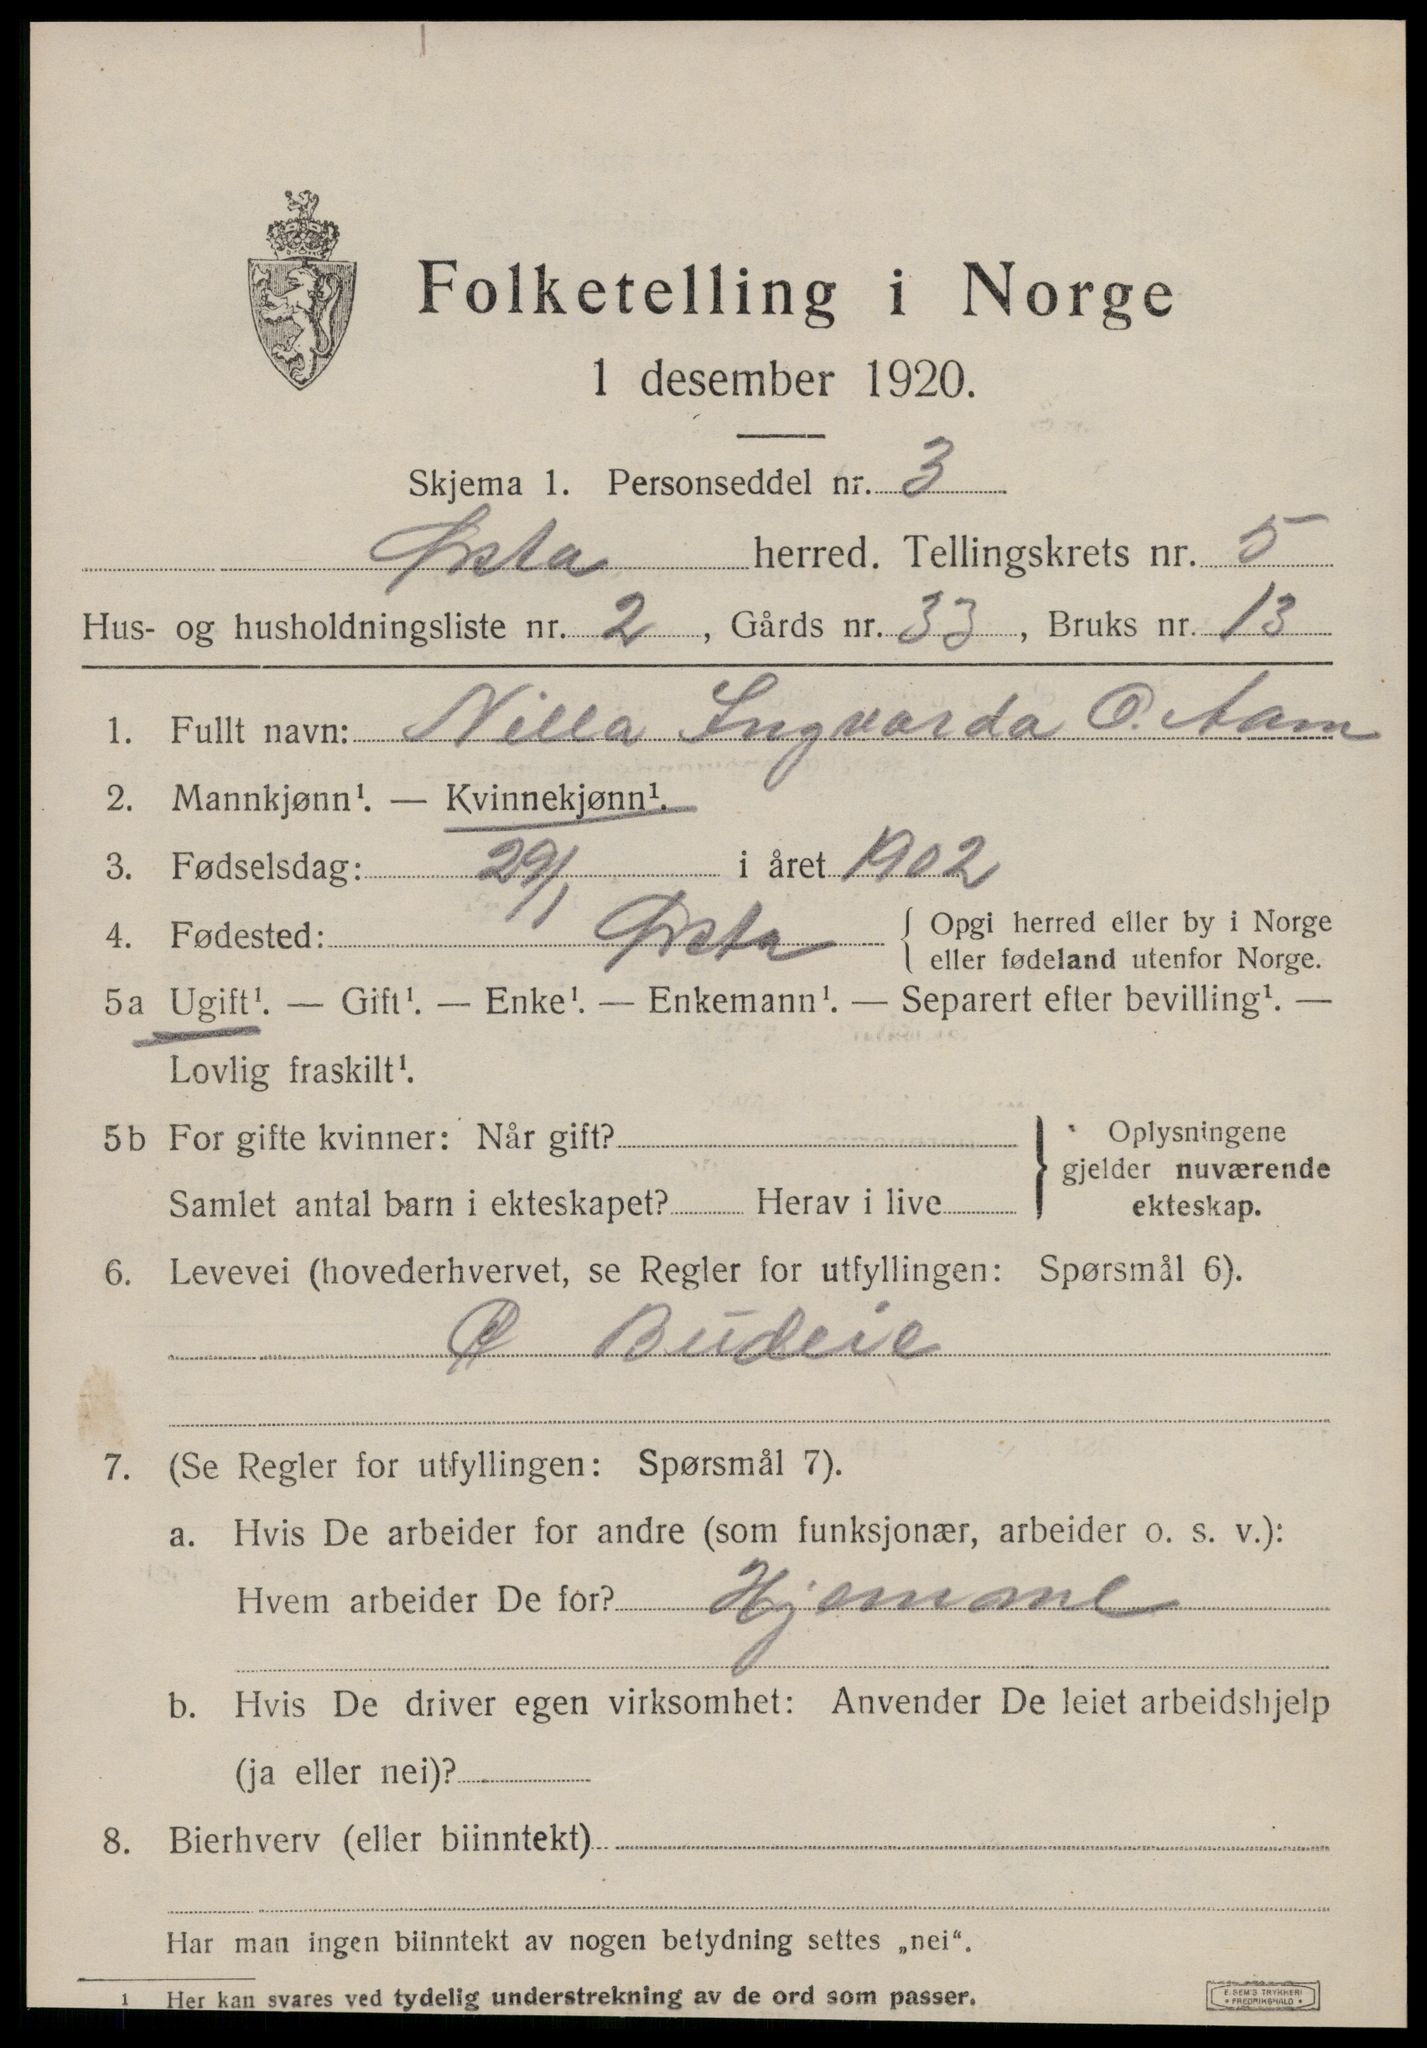 Folketelling i Norge
1 desember 1920.
Skjema 1. Personseddel nr. 3
Ørsta herred. Tellingskrets nr. 5
Hus- og husholdningsliste nr. 2, Gårds nr. 33, Bruks nr. 13
1. Fullt navn: Nilla Ingvarda O. Aam
2. Mannkjønn¹. — Kvinnekjønn¹.
3. Fødselsdag: 29/1 i året 1902
4. Fødested: Ørsta { Opgi herred eller by i Norge
eller fødeland utenfor Norge.
5a Ugift¹. — Gift¹. — Enke¹. — Enkemann¹. — Separert efter bevilling¹. —
Lovlig fraskilt¹.
5b For gifte kvinner: Når gift?
Samlet antal barn i ekteskapet? Herav i live
} Oplysningene
gjelder nuværende
ekteskap.
6. Levevei (hovederhvervet, se Regler for utfyllingen: Spørsmål 6).
Budeie
7. (Se Regler for utfyllingen: Spørsmål 7).
a. Hvis De arbeider for andre (som funksjonær, arbeider o. s. v.):
Hvem arbeider De for? Hjemme
b. Hvis De driver egen virksomhet: Anvender De leiet arbeidshjelp
(ja eller nei)?
8. Bierhverv (eller biinntekt)
Har man ingen biinntekt av nogen betydning settes „nei“.
1 Her kan svares ved tydelig understrekning av de ord som passer.
E. SEM'S TRYKKERI
• FREDRIKSHALD •